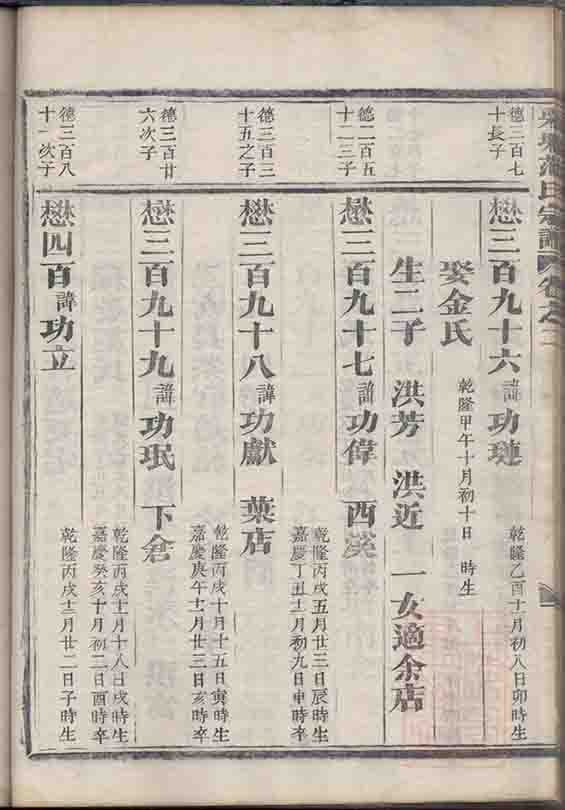 范氏宗譜 卷之二
德三百七
十長子
懋三百九十六 諱功璉
乾隆乙酉十一月初八日卯時生
娶金氏 乾隆甲午十月初十日 時生
生二子 洪芳 洪近 一女適余店
德二百五
十二三子
懋三百九十七 諱功偉 西溪
乾隆丙戌五月廿三日辰時生
嘉慶丁丑十二月初九日申時卒
德三百三
十五之子
懋三百九十八 諱功獻 葉店
乾隆丙戌十月十五日寅時生
嘉慶庚午十二月廿三日亥時卒
德三百廿
六次子
懋三百九十九 諱功珉 下倉
乾隆丙戌十一月十八日戌時生
嘉慶癸亥十月初二日酉時卒
德三百八
十一次子
懋四百 諱功立
乾隆丙戌十二月廿二日子時生